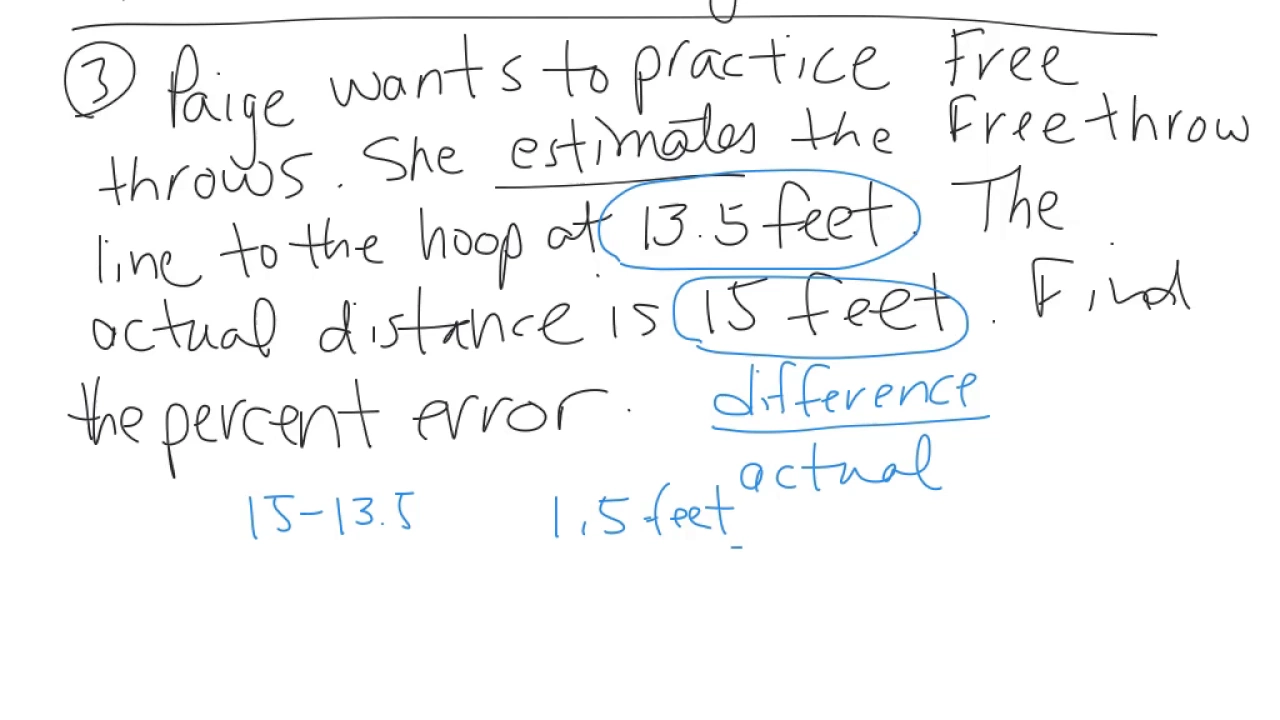 3 Paige wants to practice Free
throws. She estimates the Freethrow
line to the hoop at 13.5 feet. The
actual distance is 15 feet. Find
the percent error.
difference
actual
15-13.5 1.5 feet